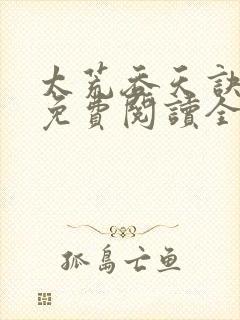 太荒吞天訣
免費閱讀全
孤島亡鱼